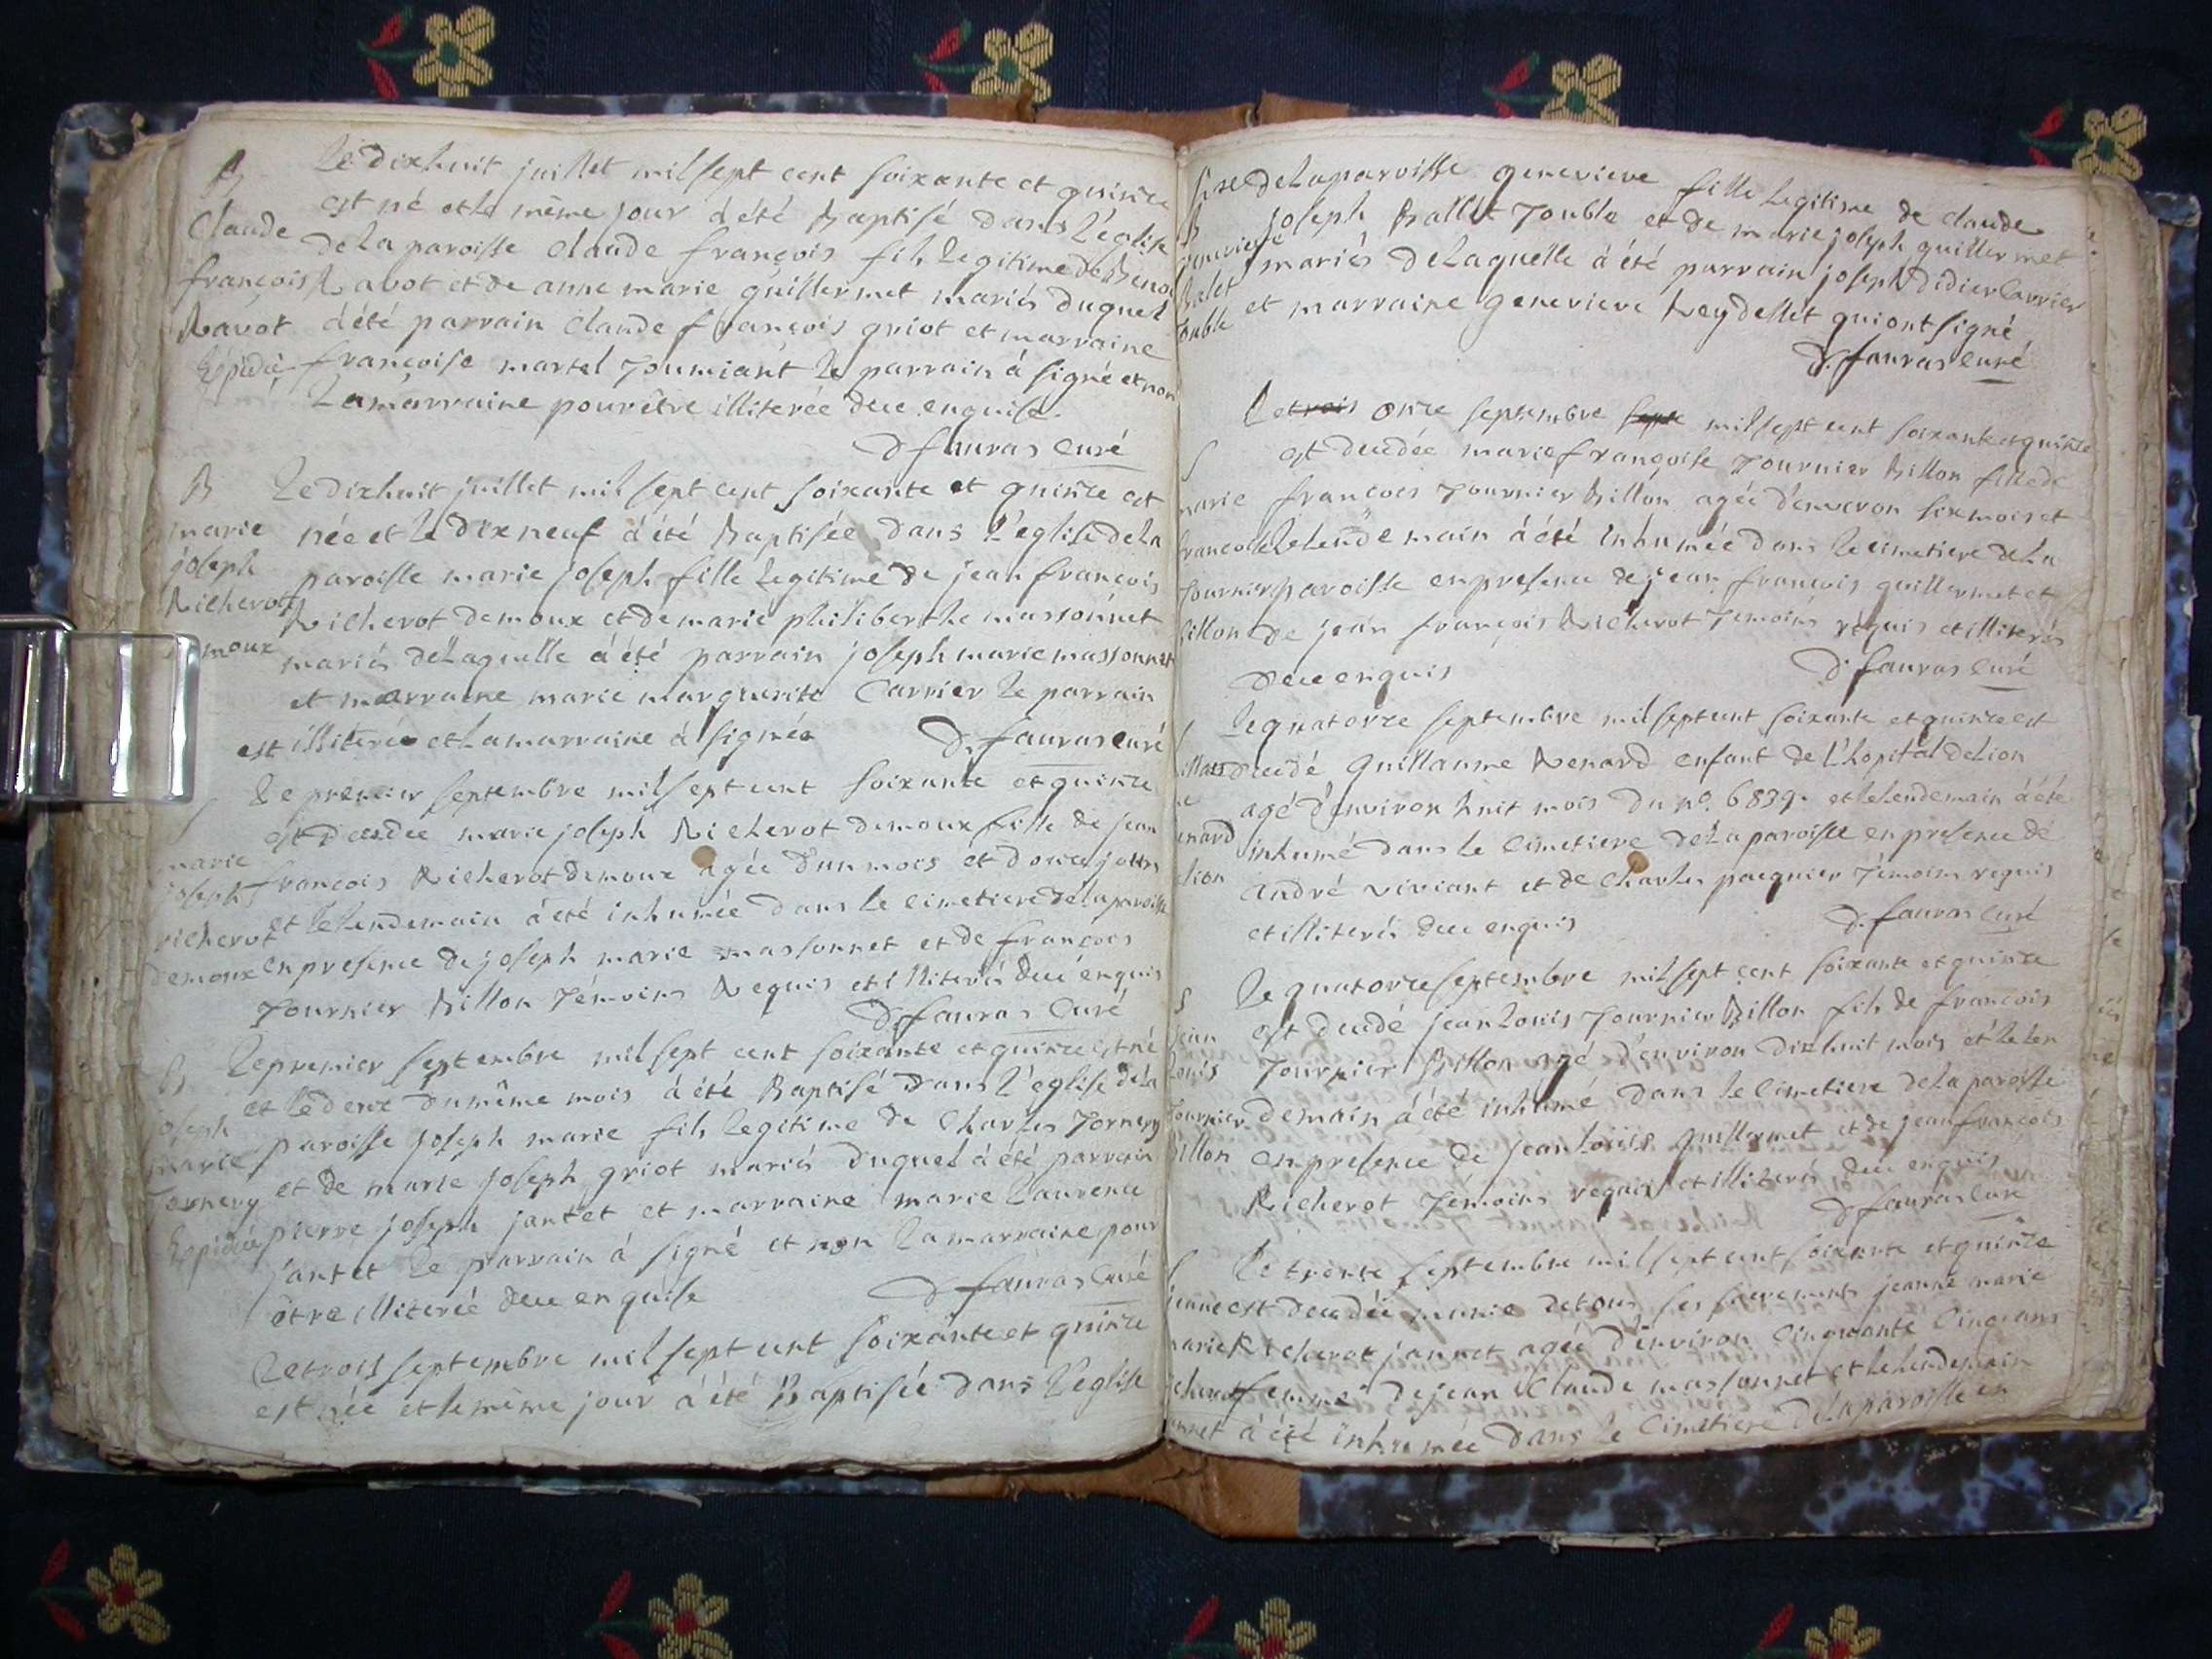 B Le dixhuit juillet mil sept cent soixante et quinze
est né et le même jour à été Baptisé dans L'église
Claude de la paroisse Claude françois fils Legitime de Benoi
françois Ravot et de anne marie guillermet mariés duquel
Ravot à été parrain Claude françois griot et marraine
Expédié françoise martel Joumiant Le parrain à signé et non
La marraine pour être illiterée dece enquise.
D. fauras Curé
B Le dixhuit juillet mil sept cent soixante et quinze est
marie née et le dix neuf à été Baptisée dans L'église de La
joseph paroisse marie joseph fille legitime de jean françois
Richerot Richerot demoux et de marie philiberthe massonnet
demoux mariés de Laquelle à été parrain joseph marie massonnet
et marraine marie marguerite Carrier Le parrain
est illiteré et La marraine à signée D. fauras curé
S Le premier septembre mil sept cent soixante et quinze
est decedée marie joseph Richerot demoux fille de jean
marie
joseph françois Richerot demoux agée d'un mois et douze jours
richerot et le lendemain à été inhumée dans le cimetiere de la paroisse
demoux en presence de joseph marie massonnet et de françois
Tournier Billon Témoins Requis et illiterés dece enquis
D. fauras Curé
B Le premier septembre mil sept cent soixante et quinze est né
et le deux du même mois à été Baptisé dans L'église de la
joseph paroisse joseph marie fils legitime de Charles Tornery
marie et de marie joseph griot mariés duquel à été parrain
Tornery pierre joseph jantet et marraine marie Laurence
Expédié jantet Le parrain à signé et non La marraine pour
être illiterée dece enquise D fauras Curé
Le trois septembre mil sept cent soixante et quinze
est née et le même jour à été Baptisée dans L'église
de La paroisse genevieve fille legitime de claude
B joseph Ballet Jouble et de marie joseph guillermet
genevieve mariés de Laquelle à été parrain joseph Didier Carrier
Balet et marraine genevieve Reydellet qui ont signé
Jouble D. fauras curé
Le trois onze septembre sept mil sept cent soixante et quinze
S est decedée marie françoise Tournier Billon fille de
marie françois Tournier Billon agée d'environ six mois et
francoise le lendemain à été inhumée dans le cimetiere de La
Tournier paroisse en presence de jean françois guillermet et
Billon de jean françois Richerot Temoins requis et illiterés
dece enquis D. fauras Curé
Le quatorze septembre mil sept cent soixante et quinze est
decedé guillaume Renard enfant de L'hopital de Lion
agé d'environ huit mois du n°. 6839. et le lendemain à été
enard inhumé dans le cimetiere de La paroisse en presence de
lion andré viviant et de Charles pacquier Témoins requis
et illiterés dece enquis D. fauras Curé
S Le quatorze septembre mil sept cent soixante et quinze
jean est decedé jean Louis Tournier Billon fils de françois
Louis Tournier Billon agé d'environ dixhuit mois et le len
Tournier demain à été inhumé dans le cimetiere de La paroisse
Billon en presence de jean Louis guillermet et de jean françois
Richerot Témoins requis et illiterés dece enquis
D fauras Cure
S Le trente septembre mil sept cent soixante et quinze
jeanne est decedée munie de tous ses sacrements jeanne marie
marie Richerot jannet agée d'environ Cinquante Cinq ans
femme de jean Claude massonnet et le lendemain
à été inhumée dans le Cimetiere de La paroisse en